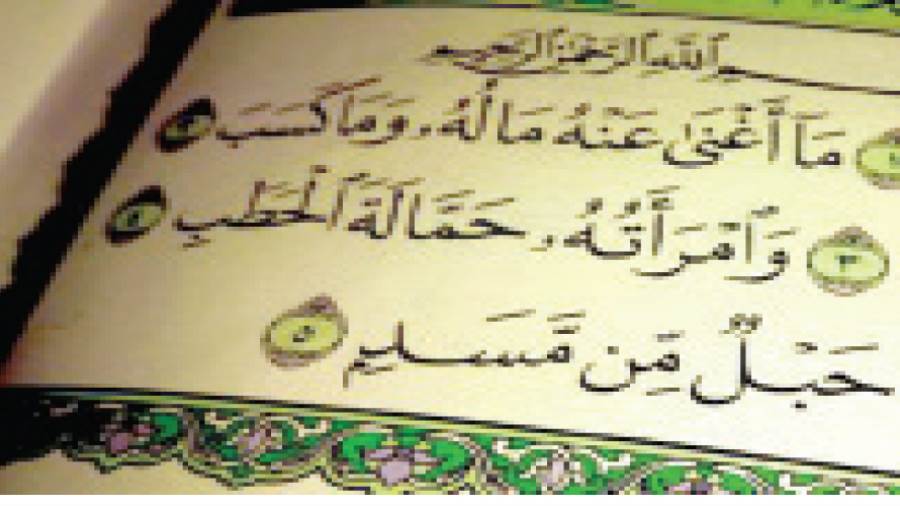 بِسْمِ ٱللَّهِ ٱلرَّحْمَٰنِ ٱلرَّحِيمِ
مَآ أَغْنَىٰ عَنْهُ مَالُهُۥ وَمَا كَسَبَ ٢
٣ وَٱمْرَأَتُهُۥ حَمَّالَةَ ٱلْحَطَبِ ٤
حَبْلٌ مِّن مَّسَدٍۭ ٥